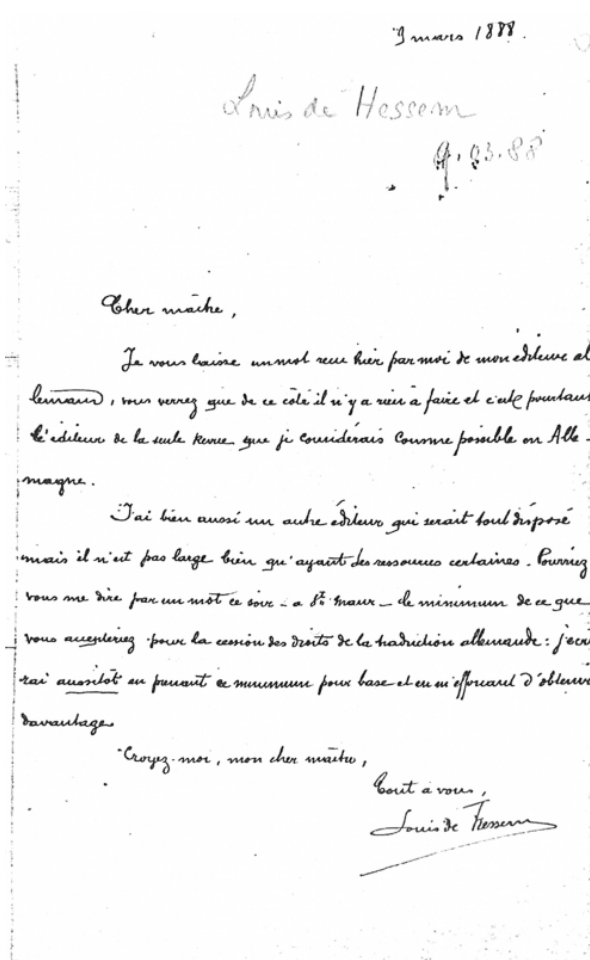 9 mars 1888.
Louis de Hessem
9.03.88
Cher maître,
Je vous laisse un mot reçu hier par moi de mon éditeur al
lemand, vous verrez que de ce côté il n'y a rien à faire et c'est pourtant
l'éditeur de la seule Revue que je considérais comme possible en Alle-
magne.
J'ai bien aussi un autre éditeur qui serait tout disposé
mais il n'est pas large bien qu'ayant des ressources certaines. Pourriez
vous me dire par un mot ce soir - a St. Maur - le minimum de ce que
vous accepteriez pour la cession des droits de la traduction allemande: j'écri
rai aussitôt en prenant ce minimum pour base et en m'efforçant d'obtenir
davantage.
Croyez-moi, mon cher maître,
Tout à vous,
Louis de Hessem